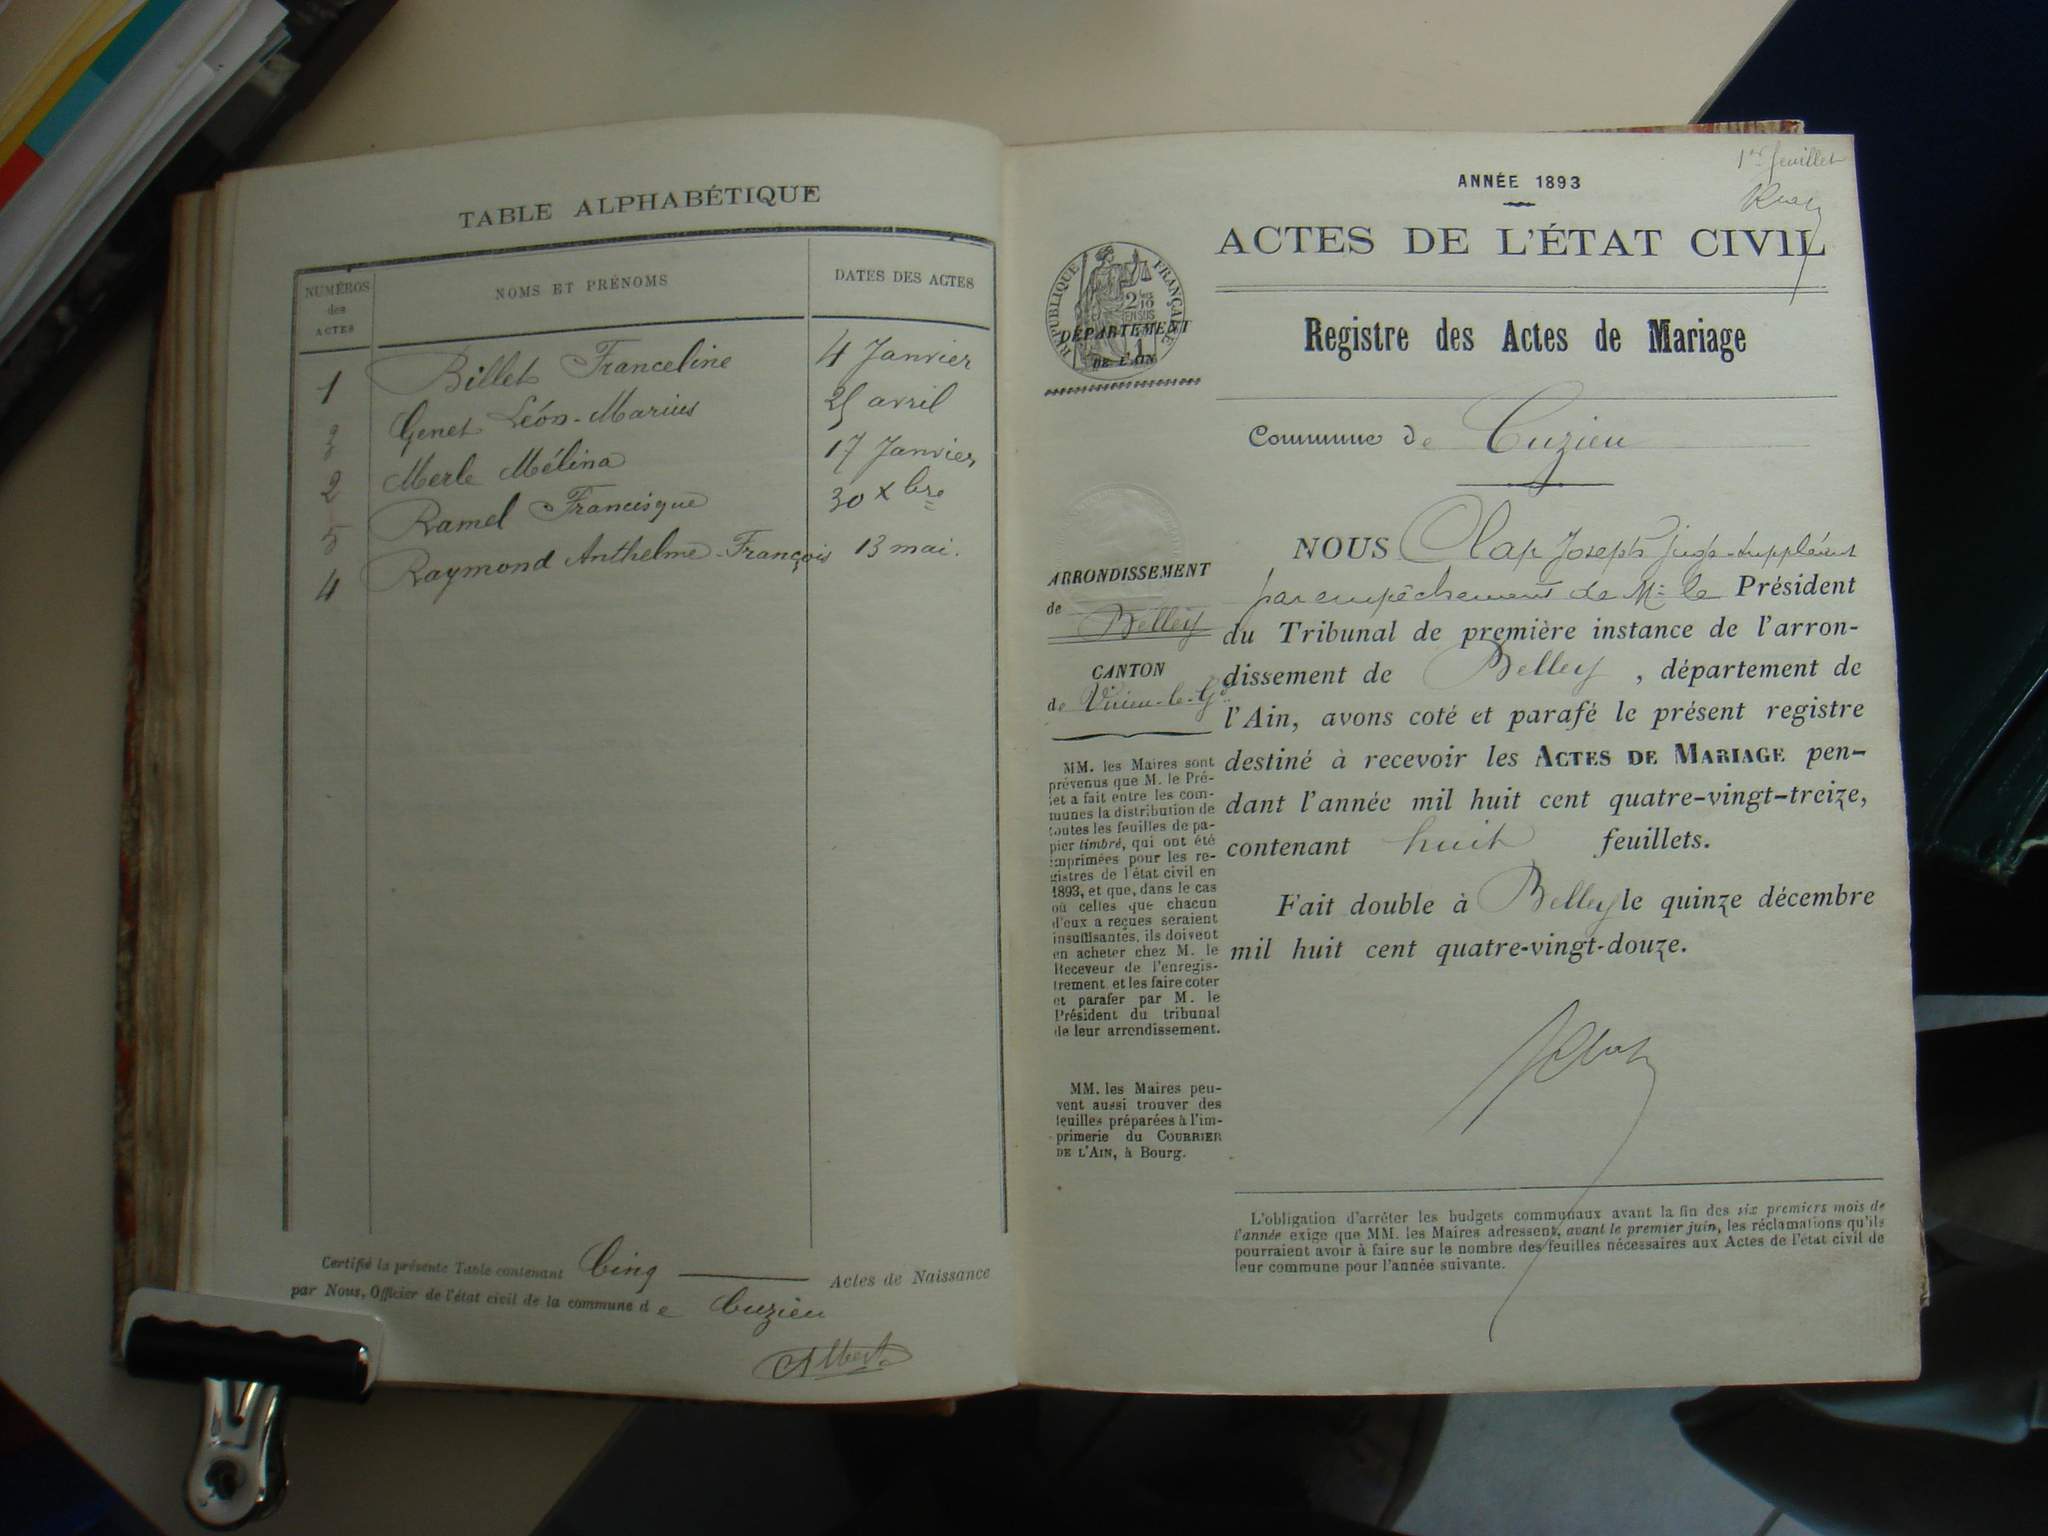 TABLE ALPHABÉTIQUE
NUMÉROS des ACTES
NOMS ET PRÉNOMS
DATES DES ACTES
1 Billet Franceline 4 Janvier
3 Genet Léon-Marius 25 avril
2 Merle Mélina 17 Janvier
5 Ramel Francisque 30 Xbre
4 Raymond Anthelme-François 13 mai.
Certifié la présente Table contenant Cinq Actes de Naissance
par Nous, Officier de l'état civil de la commune de Cuzieu
Albert
1er feuillet
ANNÉE 1893
ACTES DE L'ÉTAT CIVIL
RÉPUBLIQUE FRANÇAISE
2/10 EN SUS
DÉPARTEMENT
DE L'AIN
Registre des Actes de Mariage
Commune de Cuzieu
ARRONDISSEMENT
de Belley
CANTON
de Virieu-le-Gd
MM. les Maires sont
prévenus que M. le Pré-
fet a fait entre les com-
munes la distribution de
toutes les feuilles de pa-
pier timbré, qui ont été
imprimées pour les re-
gistres de l'état civil en
1893, et que, dans le cas
où celles que chacun
d'eux a reçues seraient
insuffisantes, ils doivent
en acheter chez M. le
Receveur de l'enregis-
trement et les faire coter
et parafer par M. le
Président du tribunal
de leur arrondissement.
MM. les Maires peu-
vent aussi trouver des
feuilles préparées à l'im-
primerie du COURRIER
DE L'AIN, à Bourg.
NOUS Clap Joseph Juge-suppléant
par empêchement de Mr le Président
du Tribunal de première instance de l'arron-
dissement de Belley, département de
l'Ain, avons coté et parafé le présent registre
destiné à recevoir les ACTES DE MARIAGE pen-
dant l'année mil huit cent quatre-vingt-treize,
contenant huit feuillets.
Fait double à Belley le quinze décembre
mil huit cent quatre-vingt-douze.
L'obligation d'arrêter les budgets communaux avant la fin des six premiers mois de
l'année exige que MM. les Maires adressent, avant le premier juin, les réclamations qu'ils
pourraient avoir à faire sur le nombre des feuilles nécessaires aux Actes de l'état civil de
leur commune pour l'année suivante.